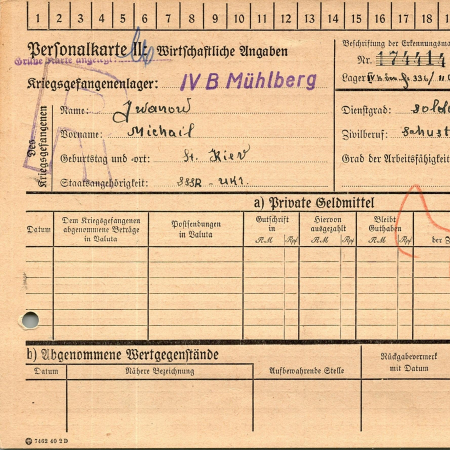 1 2 3 4 5 6 7 8 9 10 11 12 13 14 15 16 17 18
Personalkarte II: Wirtschaftliche Angaben
Grüne Karte angelegt
Kriegsgefangenenlager: IV B Mühlberg
Des Kriegsgefangenen
Name: Iwanow
Vorname: Michail
Geburtstag und -ort: St. Kiev
Staatsangehörigkeit: SSSR - Ukr.
Beschriftung der Erkennungsma
Nr. 174414
Lager:
Dienstgrad: Sold
Zivilberuf: Schust
Grad der Arbeitsfähigkeit
a) Private Geldmittel
Datum
Dem Kriegsgefangenen abgenommene Beträge in Valuta
Postsendungen in Valuta
Gutschrift in
RM Rpf
Hiervon ausgezahlt
RM Rpf
Bleibt Guthaben
RM Rpf
der Z
b) Abgenommene Wertgegenstände
Datum
Nähere Bezeichnung
Aufbewahrende Stelle
Rückgabevermerk mit Datum
7462 40 2 D